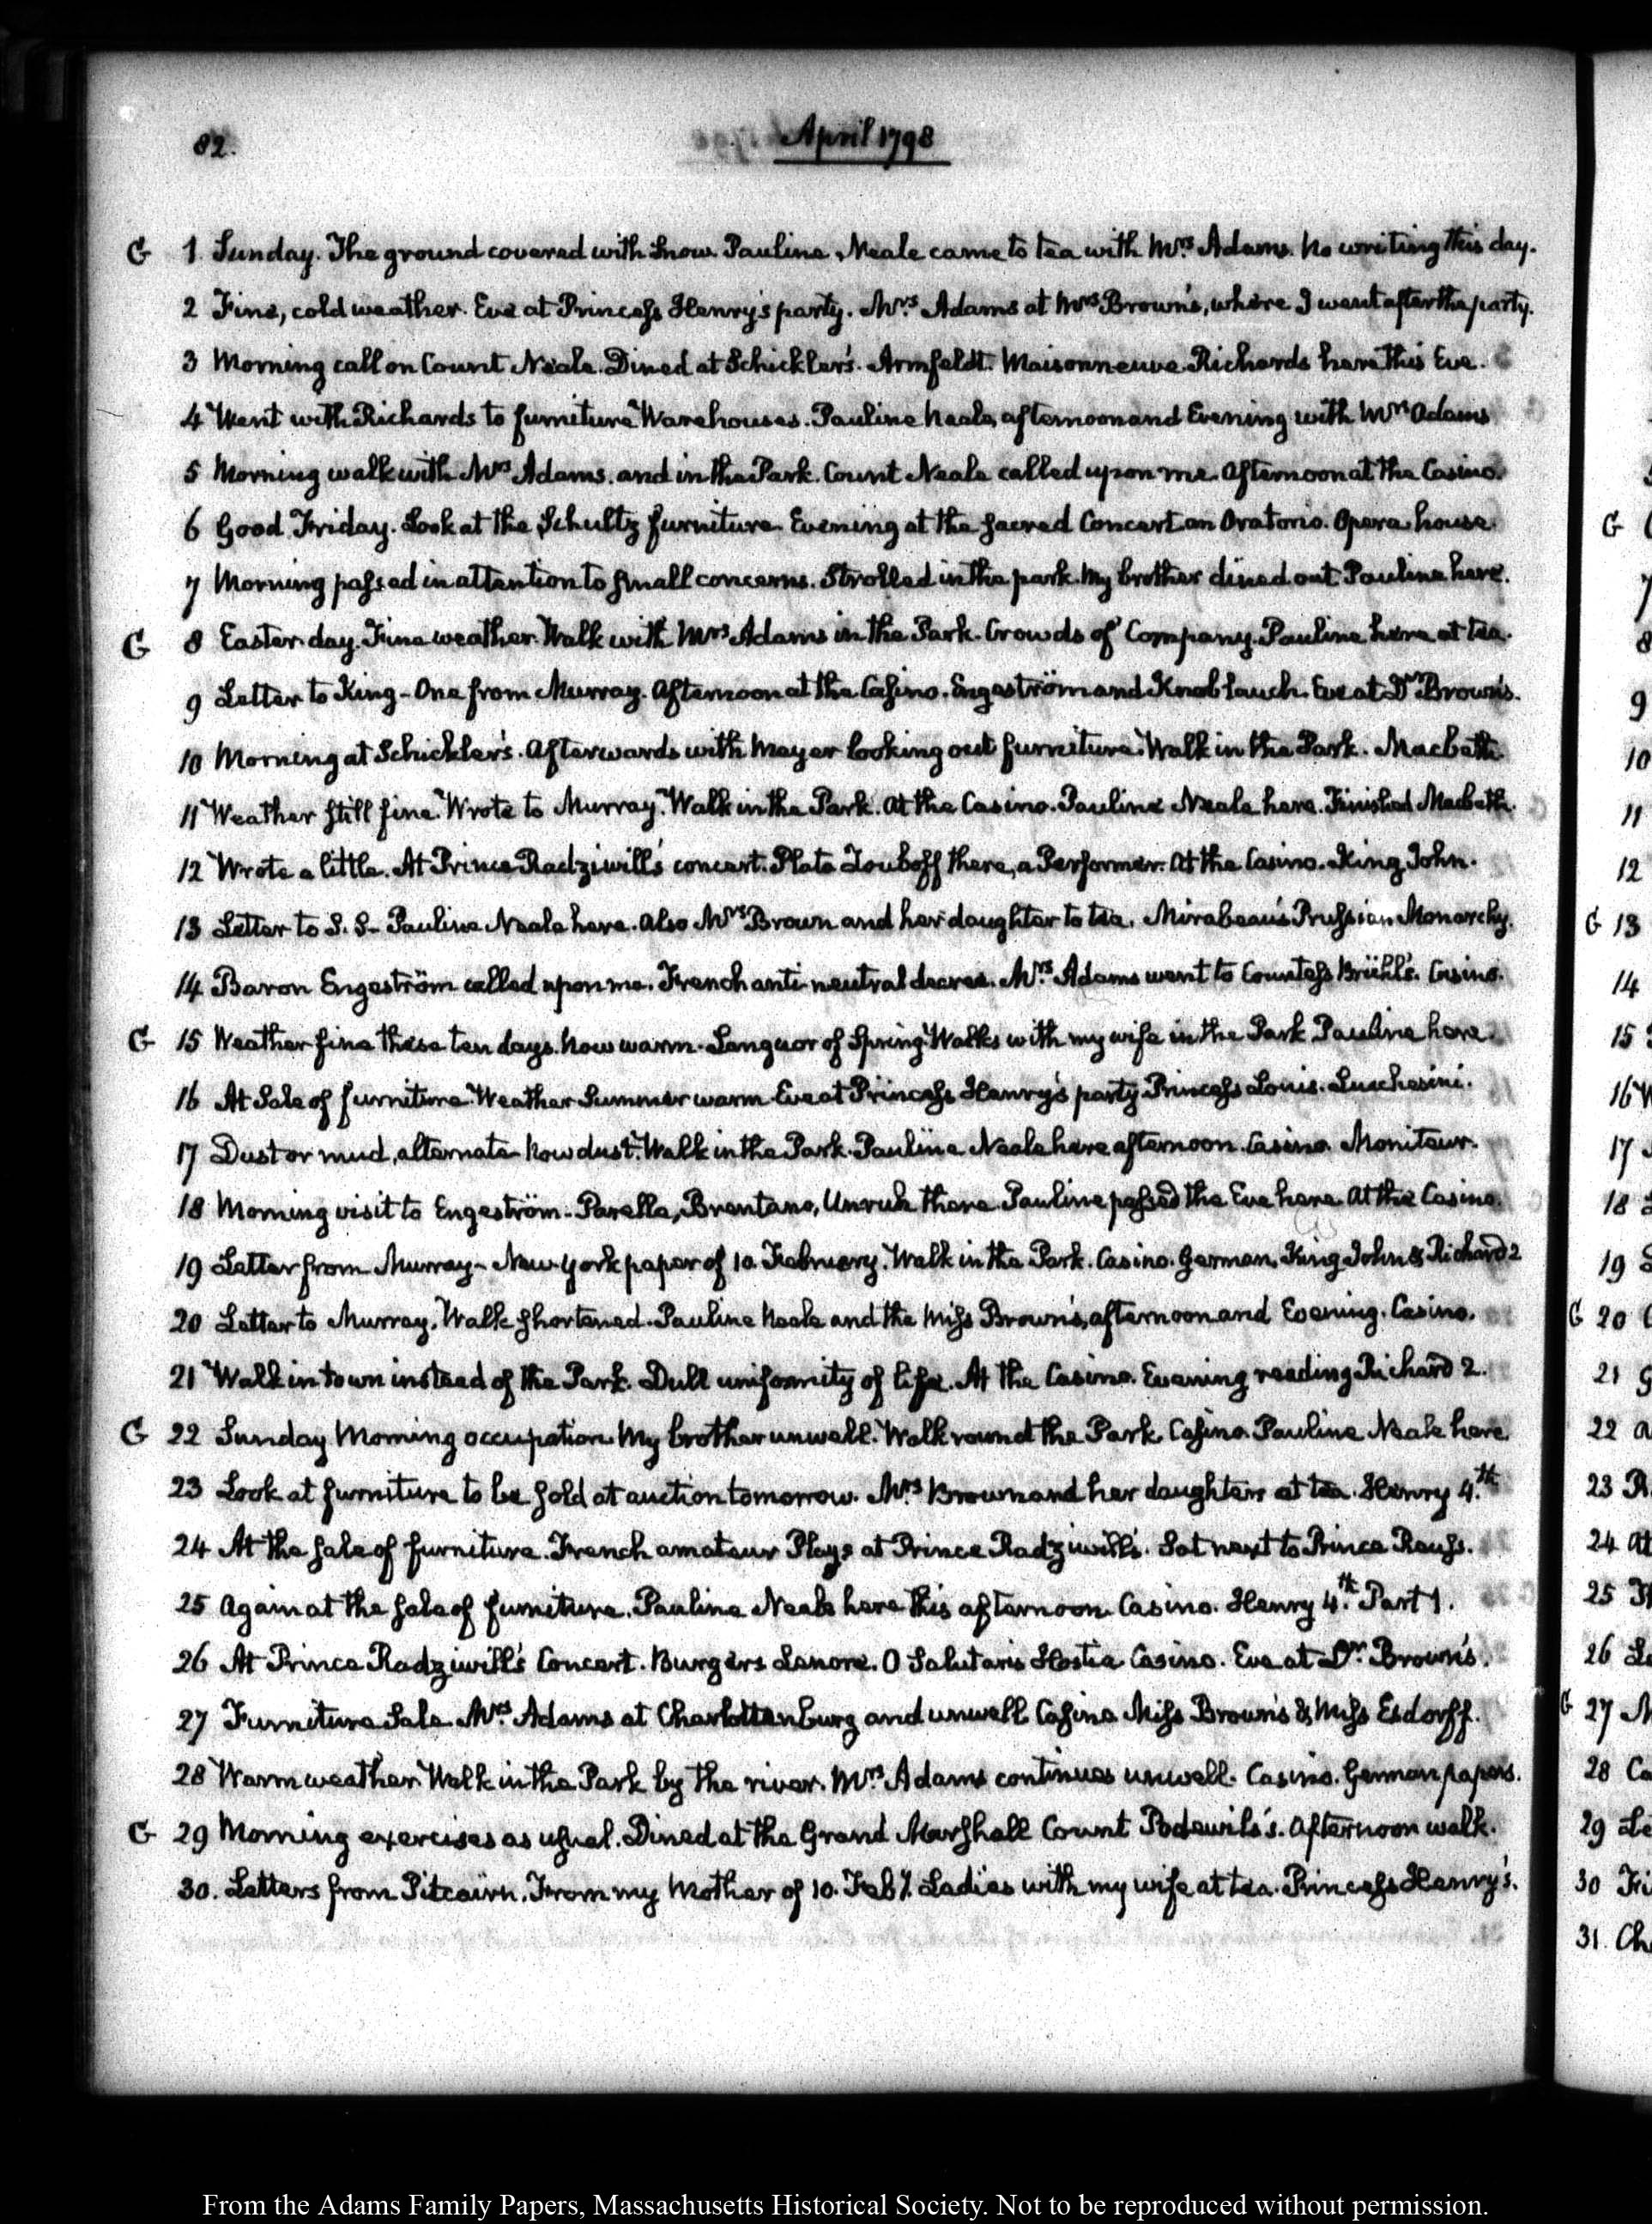 82.
April 1798
G 1. Sunday. The ground covered with snow. Pauline Neale came to tea with Mrs. Adams. No writing this day.
2 Fine, cold weather. Eve at Princess Henry's party. Mrs. Adams at Mrs. Brown's, where I went after the party.
3 Morning call on Count Neale. Dined at Schickler's. Armfeldt. Maisonneuve. Richards here this Eve.
4 Went with Richards to furniture Warehouses. Pauline Neale, afternoon and Evening with Mrs. Adams
5 Morning walk with Mrs. Adams. and in the Park. Count Neale called upon me. Afternoon at the Casino.
6 Good Friday. Look at the Schultz furniture. Evening at the Sacred Concert an Oratorio. Opera house.
7 Morning passed in attention to small concerns. Strolled in the park. My brother dined out. Pauline here.
G 8 Easter day. Fine weather. Walk with Mrs. Adams in the Park. Crowds of Company. Pauline here at tea.
9 Letter to King - One from Murray. Afternoon at the Casino. Engeström and Knoblauch. Eve at Dr. Brown's.
10 Morning at Schickler's. Afterwards with Meyer looking out furniture. Walk in the Park. Macbeth.
11 Weather still fine. Wrote to Murray. Walk in the Park. At the Casino. Pauline Neale here. Finished Macbeth.
12 Wrote a little. At Prince Radziwill's concert. Plato Zouboff there, a Performer. At the Casino. King John.
13 Letter to S. S- Pauline Neale here. Also Mrs. Brown and her daughter to tea. Mirabeau's Prussian Monarchy.
14 Baron Engeström called upon me. French anti-neutral decree. Mrs. Adams went to Countess Brühl's. Casino.
G 15 Weather fine these ten days. Now warm. Languor of Spring. Walks with my wife in the Park Pauline here.
16 At Sale of furniture. Weather Summer warm. Eve at Princess Henry's party. Princess Louis. Lucchesini.
17 Dust or mud, alternate. Now dust. Walk in the Park. Pauline Neale here afternoon. Casino. Moniteur.
18 Morning visit to Engeström. Parella, Brentano, Unruh there. Pauline passed the Eve here. At the Casino.
19 Letter from Murray - New-York paper of 10. February. Walk in the Park. Casino. German. King John & Richard 2
20 Letter to Murray. Walk shortened. Pauline Neale and the Miss Brown's, afternoon and Evening. Casino.
21 Walk in town instead of the Park. Dull uniformity of life. At the Casino. Evening reading Richard 2.
G 22 Sunday Morning occupation. My brother unwell. Walk round the Park. Casino. Pauline Neale here
23 Look at furniture to be sold at auction tomorrow. Mrs. Brown and her daughters at tea. Henry 4.th
24 At the sale of furniture. French amateur Plays at Prince Radziwill's. Sat next to Prince Reuss.
25 Again at the sale of furniture. Pauline Neale here this afternoon. Casino. Henry 4.th Part 1.
26 At Prince Radziwill's Concert. Burgers Lenore. O Salutaris Hostia. Casino. Eve at Dr. Brown's.
27 Furniture Sale. Mrs. Adams at Charlottenburg and unwell. Casino Miss Brown's & Miss Esdorff.
28 Warm weather. Walk in the Park by the river. Mrs. Adams continues unwell. Casino. German papers.
G 29 Morning exercises as usual. Dined at the Grand Marshall Count Podewils's. Afternoon walk.
30. Letters from Pitcairn. From my Mother of 10. Feby. Ladies with my wife at tea. Princess Henry's.
From the Adams Family Papers, Massachusetts Historical Society. Not to be reproduced without permission.